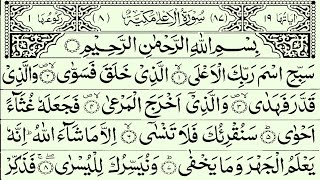 اٰيَاتُهَا ١٩ (٨٧) سُوْرَةُ الْاَعْلٰى مَكِّيَّةٌ (٨) رُكُوْعُهَا ١
بِسْمِ اللّٰهِ الرَّحْمٰنِ الرَّحِيْمِ
سَبِّحِ اسْمَ رَبِّكَ الْاَعْلَى ۙ١ الَّذِىْ خَلَقَ فَسَوّٰى ۙ٢ وَالَّذِىْ
قَدَّرَ فَهَدٰى ۙ٣ وَالَّذِىْۤ اَخْرَجَ الْمَرْعٰى ۙ٤ فَجَعَلَهٗ غُثَآءً
اَحْوٰى ؕ٥ سَنُقْرِئُكَ فَلَا تَنْسٰٓى ۙ٦ اِلَّا مَا شَآءَ اللّٰهُ ؕ اِنَّهٗ
يَعْلَمُ الْجَهْرَ وَمَا يَخْفٰى ؕ٧ وَنُيَسِّرُكَ لِلْيُسْرٰى ۚ٨ فَذَكِّرْ